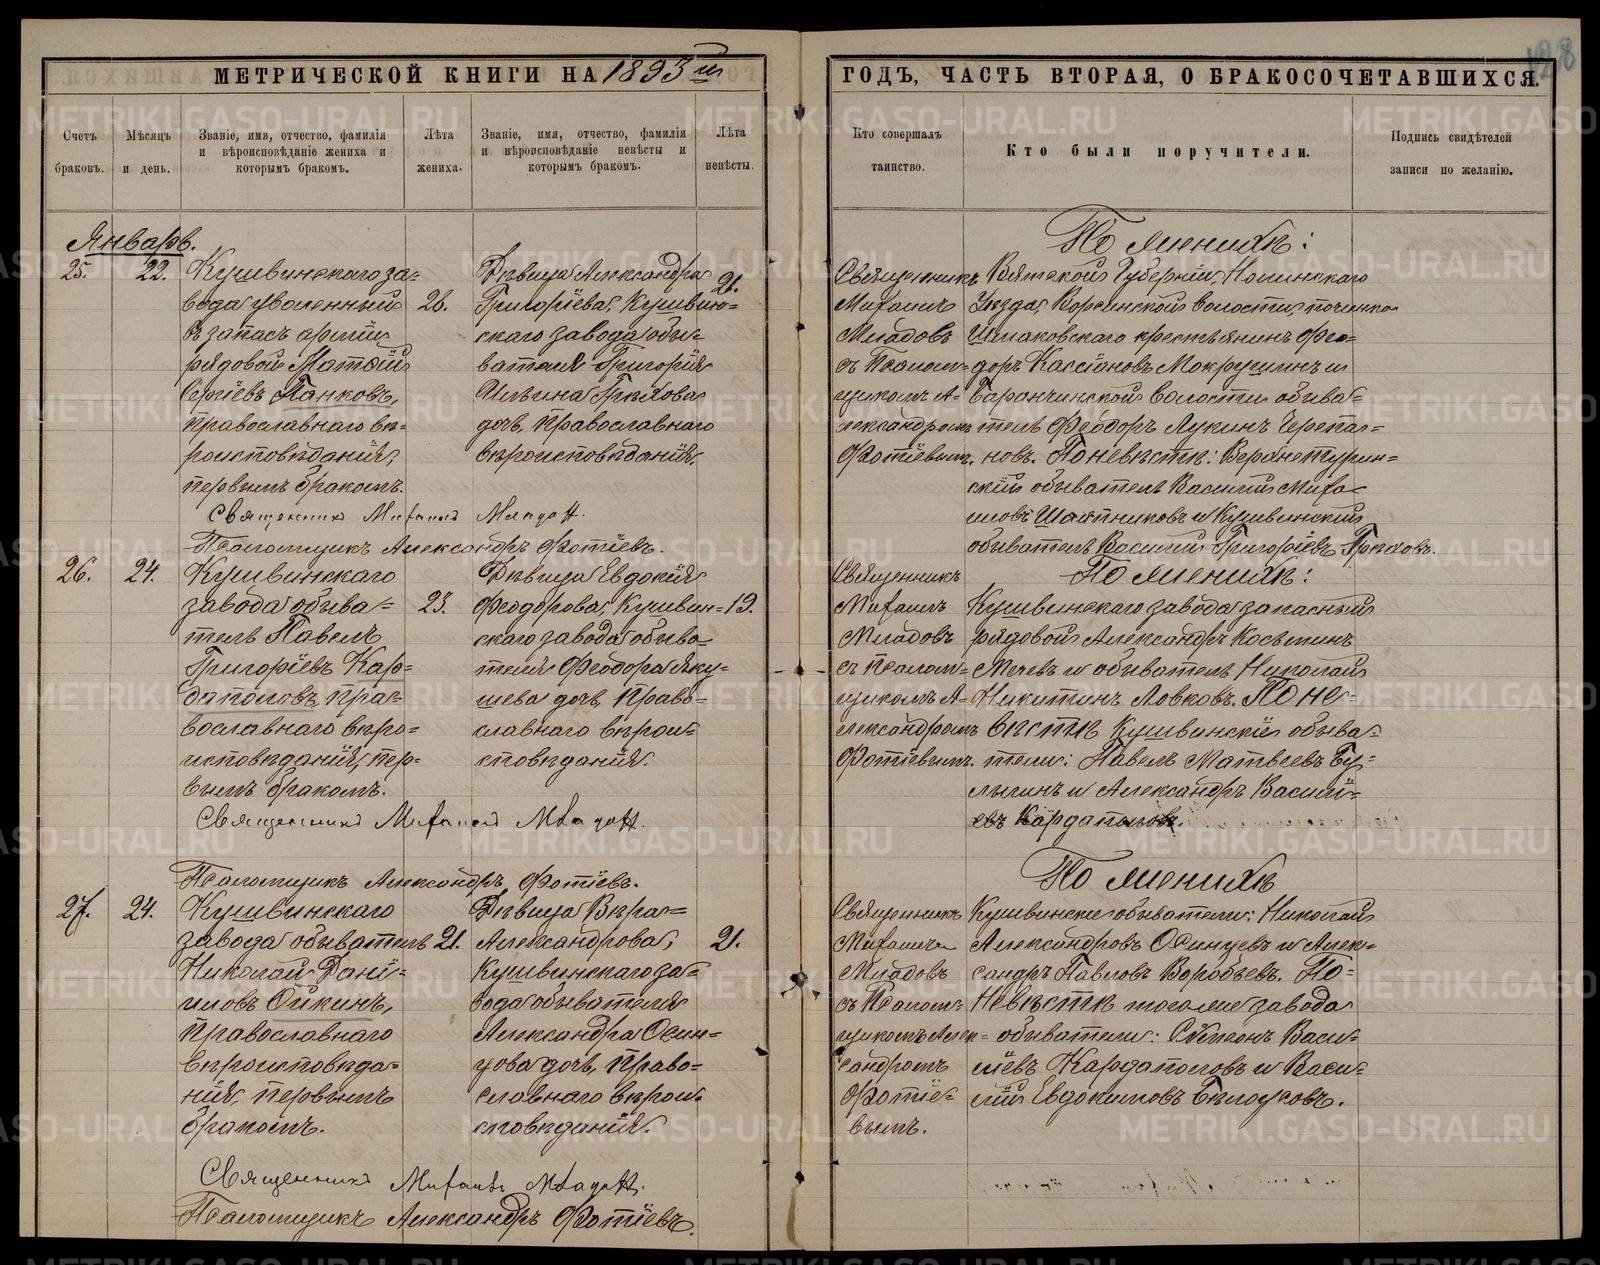 МЕТРИЧЕСКОЙ КНИГИ НА 1893й
ГОДЪ, ЧАСТЬ ВТОРАЯ, О БРАКОСОЧЕТАВШИХСЯ.
128
Счетъ браковъ.
Мѣсяцъ и день.
Званіе, имя, отчество, фамилія
и вѣроисповѣданіе жениха и
которымъ бракомъ.
Лѣта жениха.
Званіе, имя, отчество, фамилія
и вѣроисповѣданіе невѣсты и
которымъ бракомъ.
Лѣта невѣсты.
Кто совершалъ таинство.
Кто были поручители.
Подпись свидѣтелей
записи по желанію.
Январь.
25.
22.
Кушвинскаго за=
вода уволенный
въ запасъ арміи
рядовой Матѳій
Сергіевъ Панковъ,
православнаго вѣ=
роисповѣданія,
первымъ бракомъ.
26.
Дѣвица Александра
Григоріева, Кушвин=
скаго завода обы=
вателя Григорія
Ильина Грехова
дочь, православнаго
вѣроисповѣданія.
21.
Священникъ
Михаилъ
Младовъ
съ Псалом=
щикомъ А=
лександромъ
Фотіевымъ.
По женихѣ:
Вятской Губерніи, Нолинскаго
Уѣзда, Корсинской волости, починка
Шмаковскаго крестьянинъ Фео=
доръ Кассіановъ Мокрушинъ и
Баранчинской волости обыва=
тель Феодоръ Лукинъ Черепа=
новъ. По невѣстѣ: Верхнетурин=
скій обыватель Василій Михаи=
ловъ Шляпниковъ и Кушвинскій
обыватель Василій Григоріевъ Греховъ.
Священникъ Михаилъ Младовъ.
Псаломщикъ Александръ Фотіевъ.
26.
24.
Кушвинскаго
завода обыва=
тель Павелъ
Григоріевъ Кар=
даполовъ, пра=
вославнаго вѣро=
исповѣданія, пер=
вымъ бракомъ.
23.
Дѣвица Евдокія
Феодорова, Кушвин=
скаго завода обыва=
теля Феодора Яку=
шева дочь, право=
славнаго вѣрои=
сповѣданія.
19.
Священникъ
Михаилъ
Младовъ
съ Псалом=
щикомъ А=
лександромъ
Фотіевымъ.
По женихѣ:
Кушвинскаго завода запасный
рядовой Александръ Косьминъ
Мечевъ и обыватель Николай
Никитинъ Ловковъ. По не=
вѣстѣ Кушвинскіе обыва=
тели: Павелъ Матвеевъ Бу=
лыгинъ и Александръ Василі=
евъ Кардаполовъ.
Священникъ Михаилъ Младовъ.
Псаломщикъ Александръ Фотіевъ.
27.
24.
Кушвинскаго
завода обыватель
Николай Дані=
иловъ Ойкинъ,
православнаго
вѣроисповѣда=
нія, первымъ
бракомъ.
21.
Дѣвица Вѣра
Александрова,
Кушвинскаго за=
вода обывателя
Александра Осин=
цова дочь, право=
славнаго вѣрои=
сповѣданія.
21.
Священникъ
Михаилъ
Младовъ
съ Псалом=
щикомъ Алек=
сандромъ
Фотіе=
вымъ.
По женихѣ
Кушвинскіе обыватели: Николай
Александровъ Осинцевъ и Алек=
сандръ Павловъ Воробьевъ. По=
невѣстѣ того же завода
обыватели: Симеонъ Васи=
ліевъ Кардаполовъ и Васи=
лій Евдокимовъ Бѣлоусовъ.
Священникъ Михаилъ Младовъ.
Псаломщикъ Александръ Фотіевъ.
METRIKI.GASO-URAL.RU